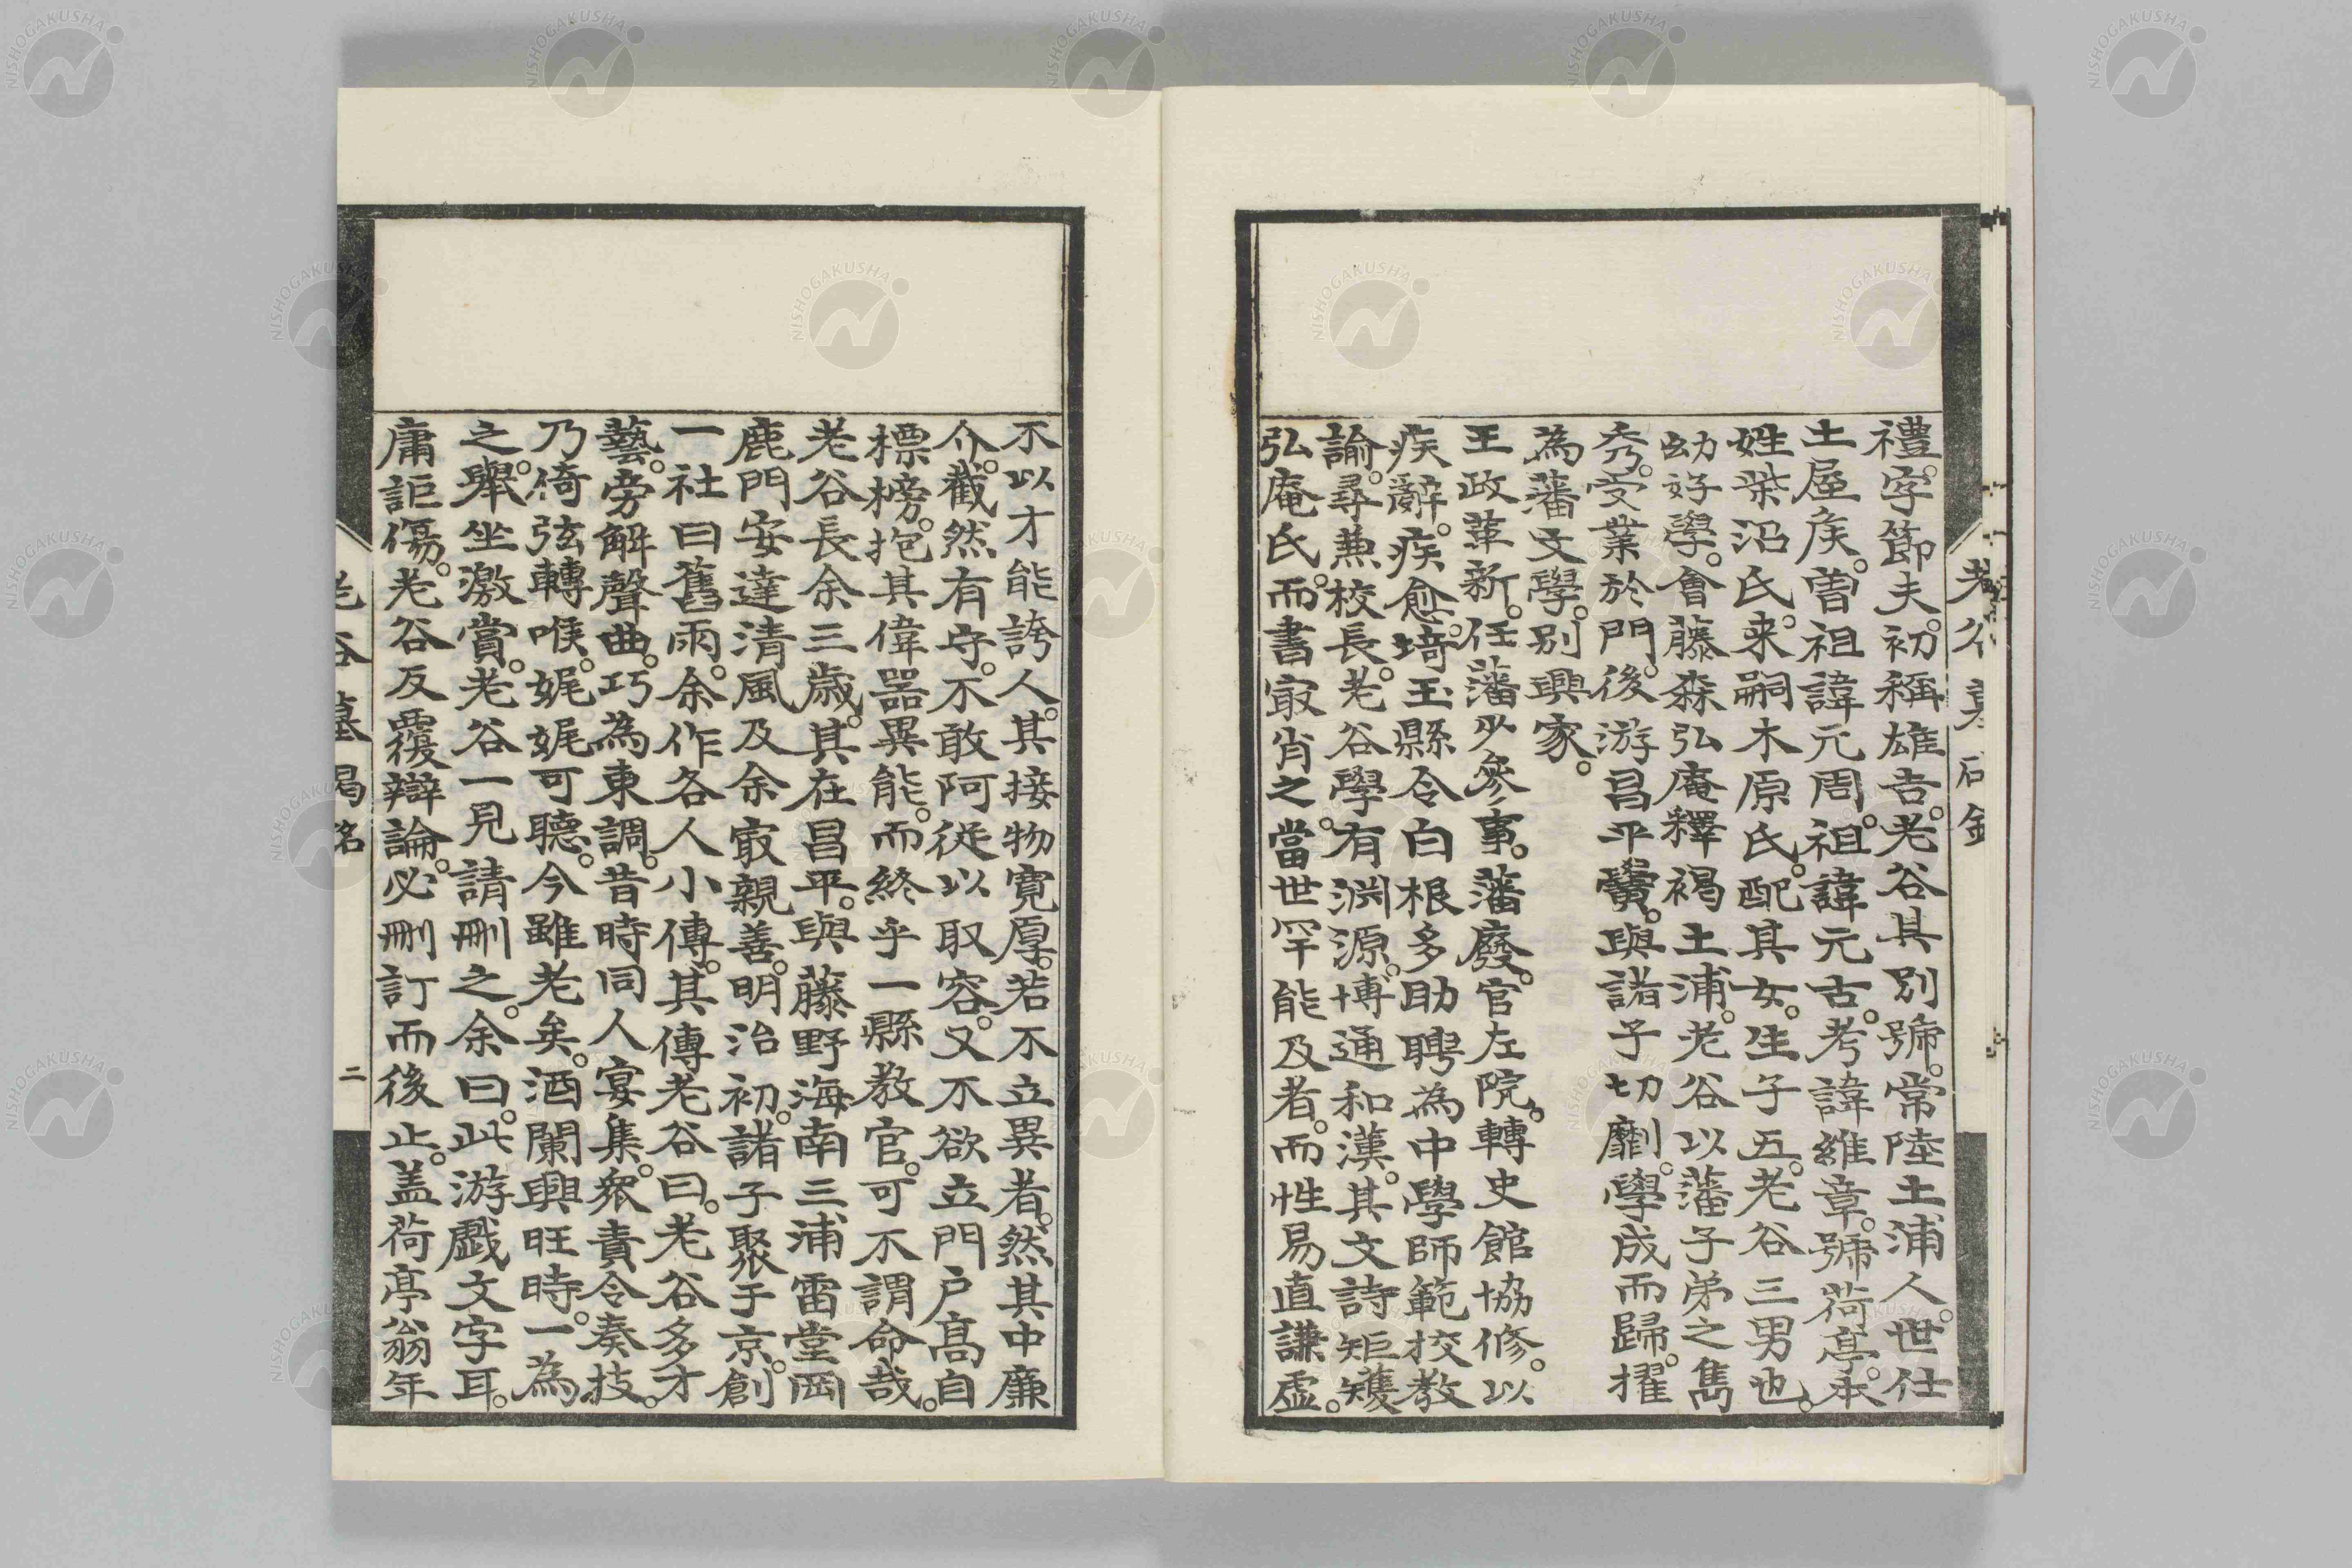 禮。字節夫。初稱雄吉。老谷其別號。常陸土浦人。世仕
土屋矦。曽祖諱元周。祖諱元古。考諱維章。號荷亭。本
姓柴沼氏。来嗣木原氏。配其女。生子五。老谷三男也。
幼好學。會藤森弘庵釋褐土浦。老谷以藩子弟之雋
秀。受業於門。後游昌平黌。與諸子切劘。學成而歸。擢
為藩文學。別興家。
王政革新。任藩少參事。藩廢。官左院。轉史館協修。以
疾辭。疾愈。埼玉縣令白根多助聘為中學師範校教
諭。尋兼校長。老谷學有淵源。博通和漢。其文詩矩矱
弘庵氏。而書㝡肖之。當世罕能及者。而性易直謙虛。
不以才能誇人。其接物寬厚。若不立異者。然其中廉
介。截然有守。不敢阿従以取容。又不欲立門戶高自
標榜。抱其偉器異能。而終乎一縣教官。可不謂命哉。
老谷長余三歲。其在昌平。與藤野海南三浦雷堂岡
鹿門安達清風及余㝡親善。明治初。諸子聚于京。創
一社曰舊雨。余作各人小傳。其傳老谷曰。老谷多才
藝。旁解聲曲。巧為東調。昔時同人宴集。衆責令奏技。
乃倚弦轉喉。娓娓可聽。今雖老矣。酒闌興旺時。一為
之舉。坐激賞。老谷一見請刪之。余曰。此游戲文字耳。
庸詎傷。老谷反覆辯論。必刪訂而後止。盖荷亭翁年
老谷墓碣銘
二